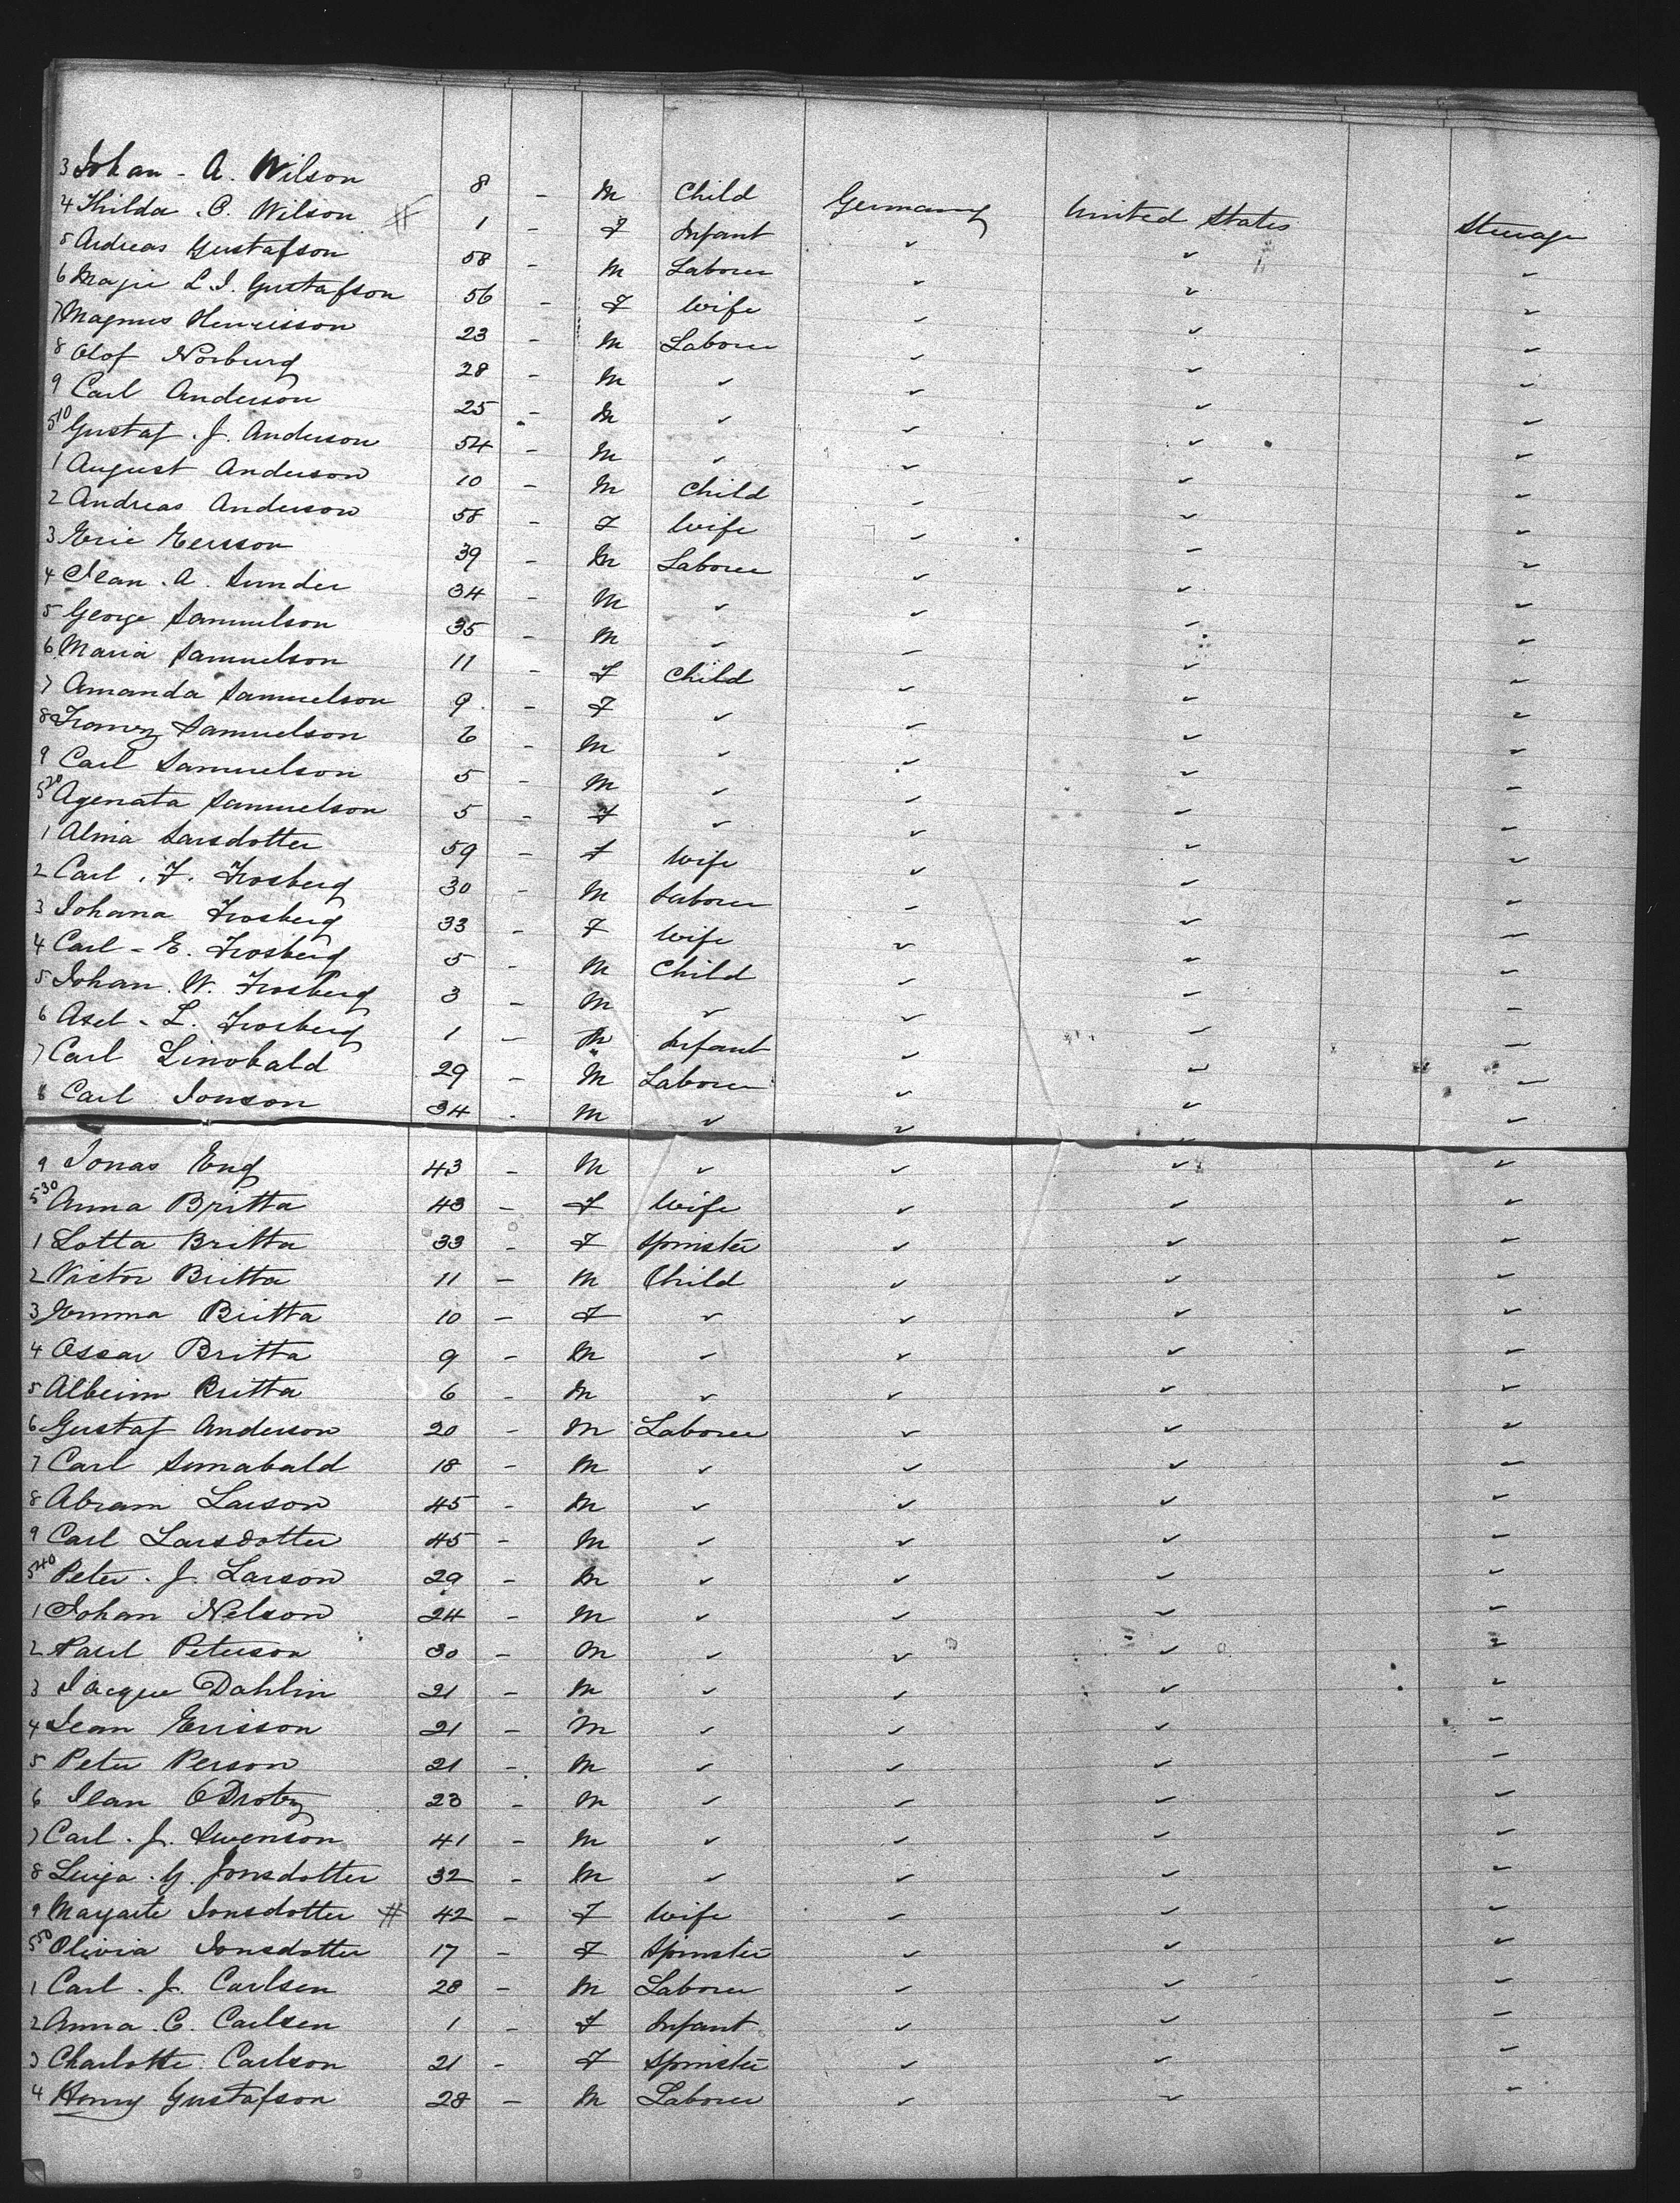 3 Johan - A. Wilson 8 - M Child Germany United States Steerage
4 Thilda . C. Wilson # 1 F Infant ✓ ✓ ✓
5 Andreas Gustafson 58 - M Laborer ✓ ✓ ✓
6 Maje L. I. Gustafson 56 - F Wife ✓ ✓ ✓
7 Magnus Henricsson 23 - M Laborer ✓ ✓ ✓
8 Olof Norburg 28 - M ✓ ✓ ✓ ✓
9 Carl Anderson 25 - M ✓ ✓ ✓ ✓
510 Gustaf . J. Anderson 54 - M ✓ ✓ ✓ ✓
1 August Anderson 10 - M Child ✓ ✓ ✓
2 Andreas Anderson 58 - F Wife ✓ ✓ ✓
3 Eric Ersson 39 - M Laborer ✓ ✓ ✓
4 Jean . A. Sunder 34 - M ✓ ✓ ✓ ✓
5 George Samuelson 35 - M ✓ ✓ ✓ ✓
6 Maria Samuelson 11 - F Child ✓ ✓ ✓
7 Amanda Samuelson 9 - F ✓ ✓ ✓ ✓
8 Samuelson 6 - M ✓ ✓ ✓ ✓
9 Carl Samuelson 5 - M ✓ ✓ ✓ ✓
520 Agenata Samuelson 5 - F ✓ ✓ ✓ ✓
1 Alma Larsdotter 59 - F Wife ✓ ✓ ✓
2 Carl . F. Frosberg 30 - M Laborer ✓ ✓ ✓
3 Johana Frosberg 33 - F Wife ✓ ✓ ✓
4 Carl - E. Frosberg 5 - M Child ✓ ✓ ✓
5 Johan . W. Frosberg 3 - M ✓ ✓ ✓ ✓
6 Axel - L. Frosberg 1 - M Infant ✓ ✓ ✓
7 Carl Linobald 29 - M Laborer ✓ ✓ ✓
8 Carl Jonson 34 - M ✓ ✓ ✓ ✓
9 Jonas Eng 43 - M ✓ ✓ ✓ ✓
530 Anna Britta 43 - F Wife ✓ ✓ ✓
1 Lotta Britta 33 - F Spinster ✓ ✓ ✓
2 Victor Britta 11 - M Child ✓ ✓ ✓
3 Emma Britta 10 - F ✓ ✓ ✓ ✓
4 Oscar Britta 9 - M ✓ ✓ ✓ ✓
5 Albeim Britta 6 - M ✓ ✓ ✓ ✓
6 Gustaf Anderson 20 - M Laborer ✓ ✓ ✓
7 Carl Sunabald 18 - M ✓ ✓ ✓ ✓
8 Abram Larson 45 - M ✓ ✓ ✓ ✓
9 Carl Larsdotter 45 - M ✓ ✓ ✓ ✓
540 Peter . J. Larson 29 - M ✓ ✓ ✓ ✓
1 Johan Nelson 24 - M ✓ ✓ ✓ ✓
2 Paul Peterson 30 - M ✓ ✓ ✓ ✓
3 Jacque Dahlin 21 - M ✓ ✓ ✓ ✓
4 Jean Ericson 21 - M ✓ ✓ ✓ ✓
5 Peter Person 21 - M ✓ ✓ ✓ ✓
6 Jean 23 - M ✓ ✓ ✓ ✓
7 Carl . J. Swenson 41 - M ✓ ✓ ✓ ✓
8 Luija . G. Jonsdotter 32 - M ✓ ✓ ✓ ✓
9 Margarte Jonsdotter # 42 - F Wife ✓ ✓ ✓
550 Olivia Jonsdotter 17 - F Spinster ✓ ✓ ✓
1 Carl . J. Carlsen 28 - M Laborer ✓ ✓ ✓
2 Anna . C. Carlsen 1 - F Infant ✓ ✓ ✓
3 Charlotte Carlson 21 - F Spinster ✓ ✓ ✓
4 Henry Gustafson 28 - M Laborer ✓ ✓ ✓